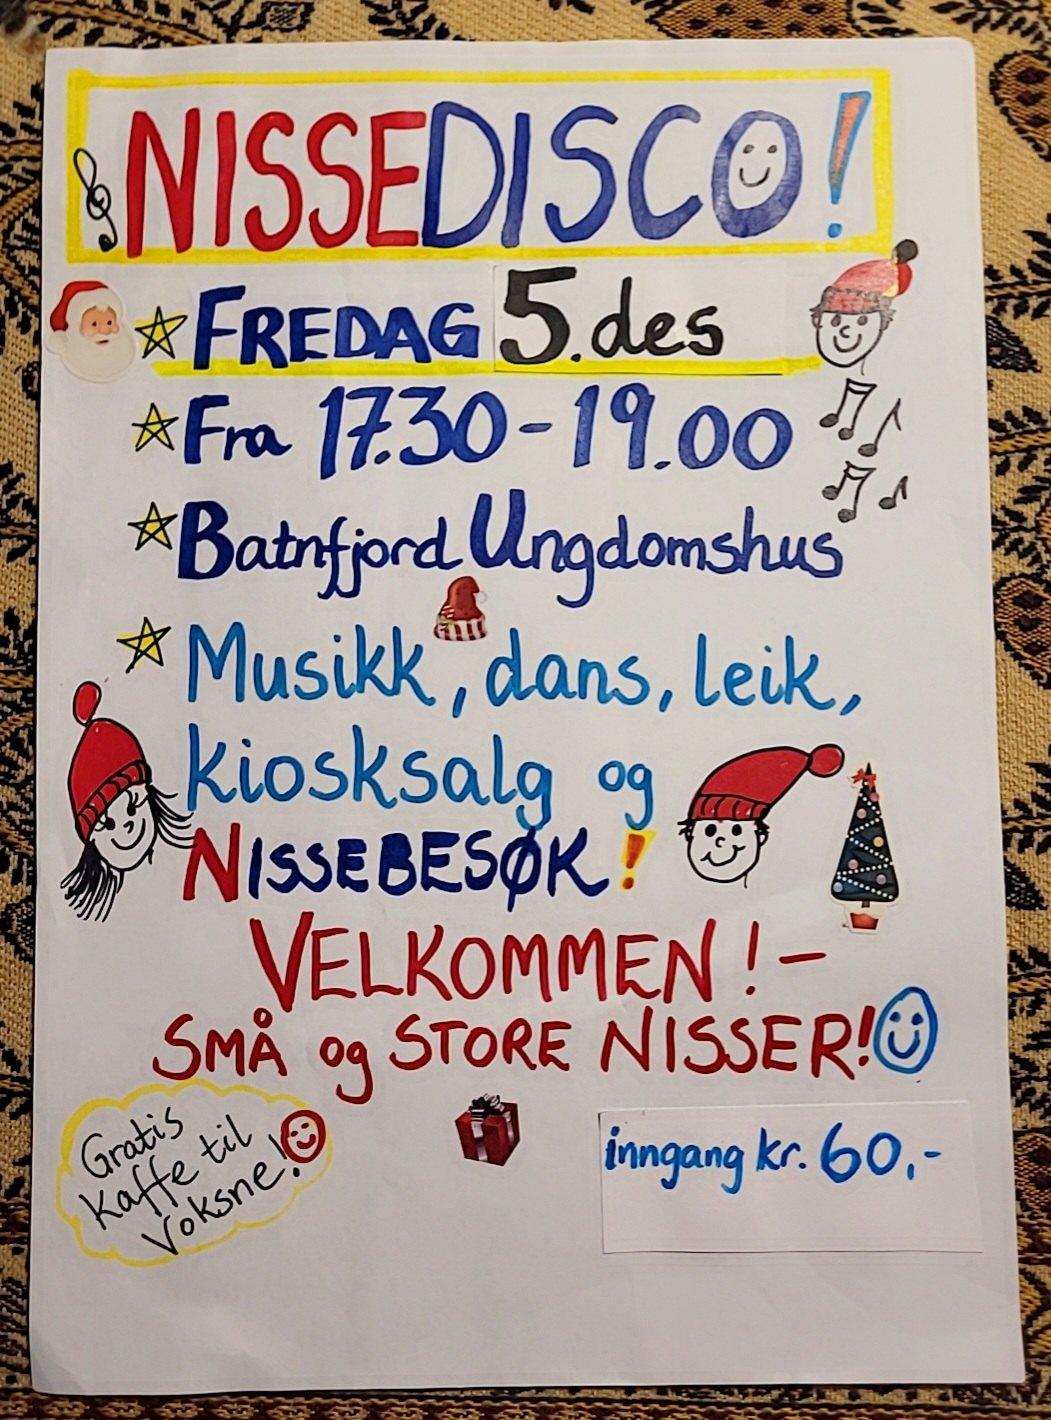 NISSEDISCO!
FREDAG 5.des
Fra 17.30-19.00
Batnfjord Ungdomshus
Musikk, dans, leik,
kiosksalg og
NISSEBESØK!
VELKOMMEN!-
SMÅ og STORE NISSER!
Gratis
kaffe til
voksne!
inngang kr. 60,-